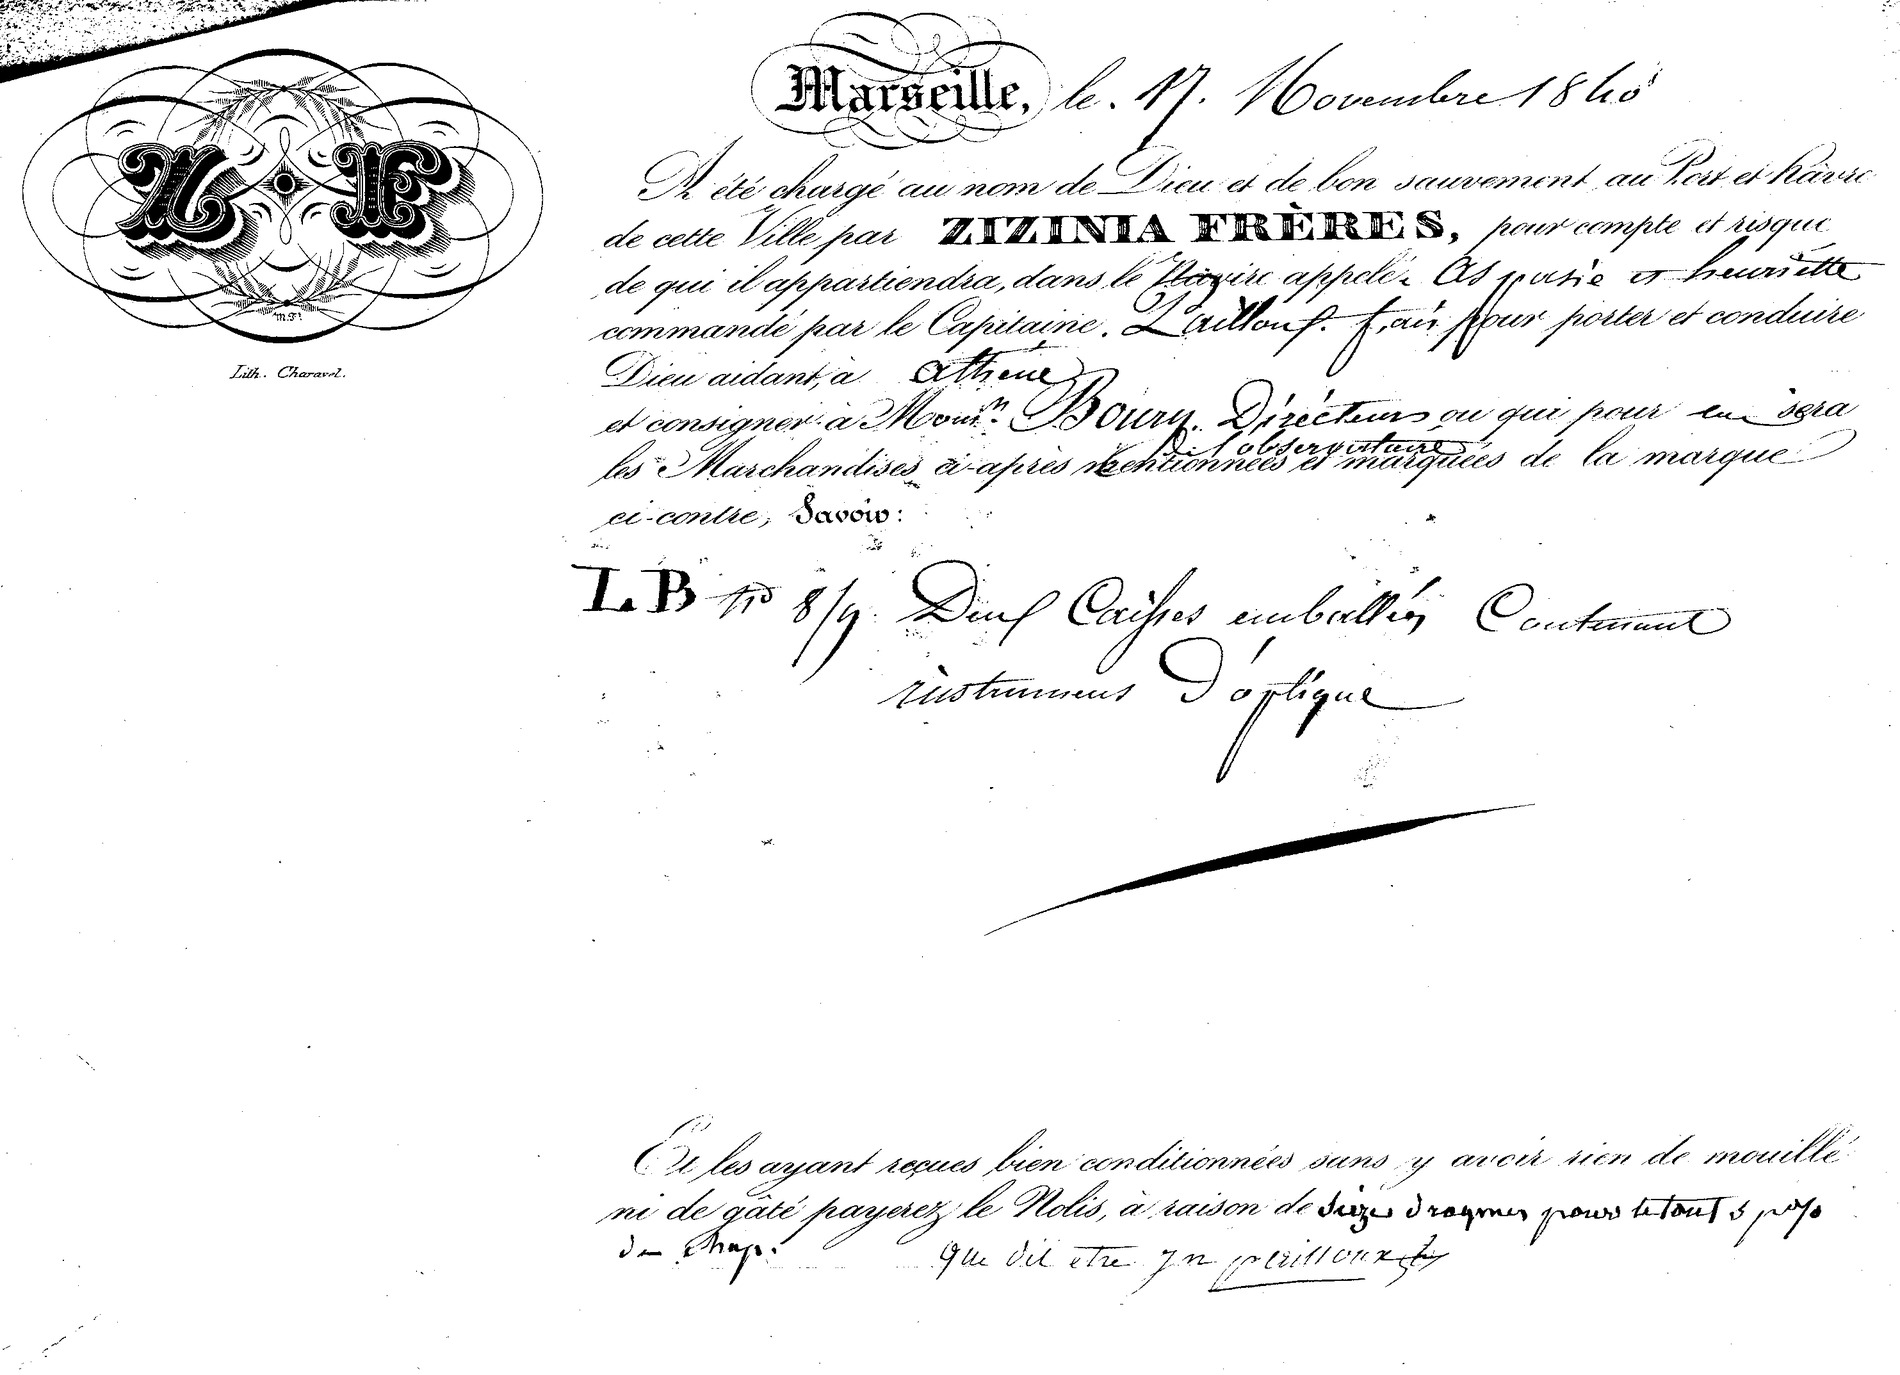 Marseille, le. 17. Novembre 1845
Z F
Lith. Charavel.
A été chargé au nom de Dieu et de bon sauvement au Port et hâvre
de cette Ville par ZIZINIA FRÈRES, pour compte et risque
de qui il appartiendra, dans le Navire appelé. Aspasie et henriette
commandé par le Capitaine. pour porter et conduire
Dieu aidant, à athene
et consigner à Directeurs ou qui pour en sera
De l'observatoire
les Marchandises ci-après mentionnées et marquées de la marque
ci-contre, Savoir:
LB No 8/9. Deux Caisses emballés Contenant
instrumens D'optique
Et les ayant reçues bien conditionnées sans y avoir rien de mouillé
ni de gâté payerez le Nolis, à raison de pour le tout 5 p%
de Chap. que dit etre